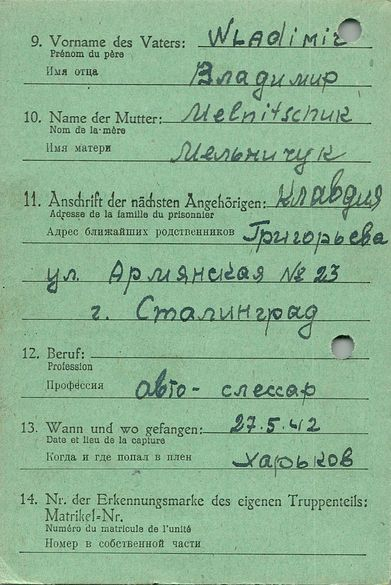 9. Vorname des Vaters: Wladimir
Prénom du père
Имя отца Владимир
10. Name der Mutter: Melnitschuk
Nom de la mère
Имя матери Мельничук
11. Anschrift der nächsten Angehörigen: Клавдия
Adresse de la famille du prisonnier
Адрес ближайших родственников Григорьева
ул. Армянская № 23
г. Сталинград
12. Beruf:
Profession
Профессия авто-слессар
13. Wann und wo gefangen: 27.5.42
Date et lieu de la capture
Когда и где попал в плен Харьков
14. Nr. der Erkennungsmarke des eigenen Truppenteils:
Matrikel-Nr.
Numéro du matricule de l'unité
Номер в собственной части